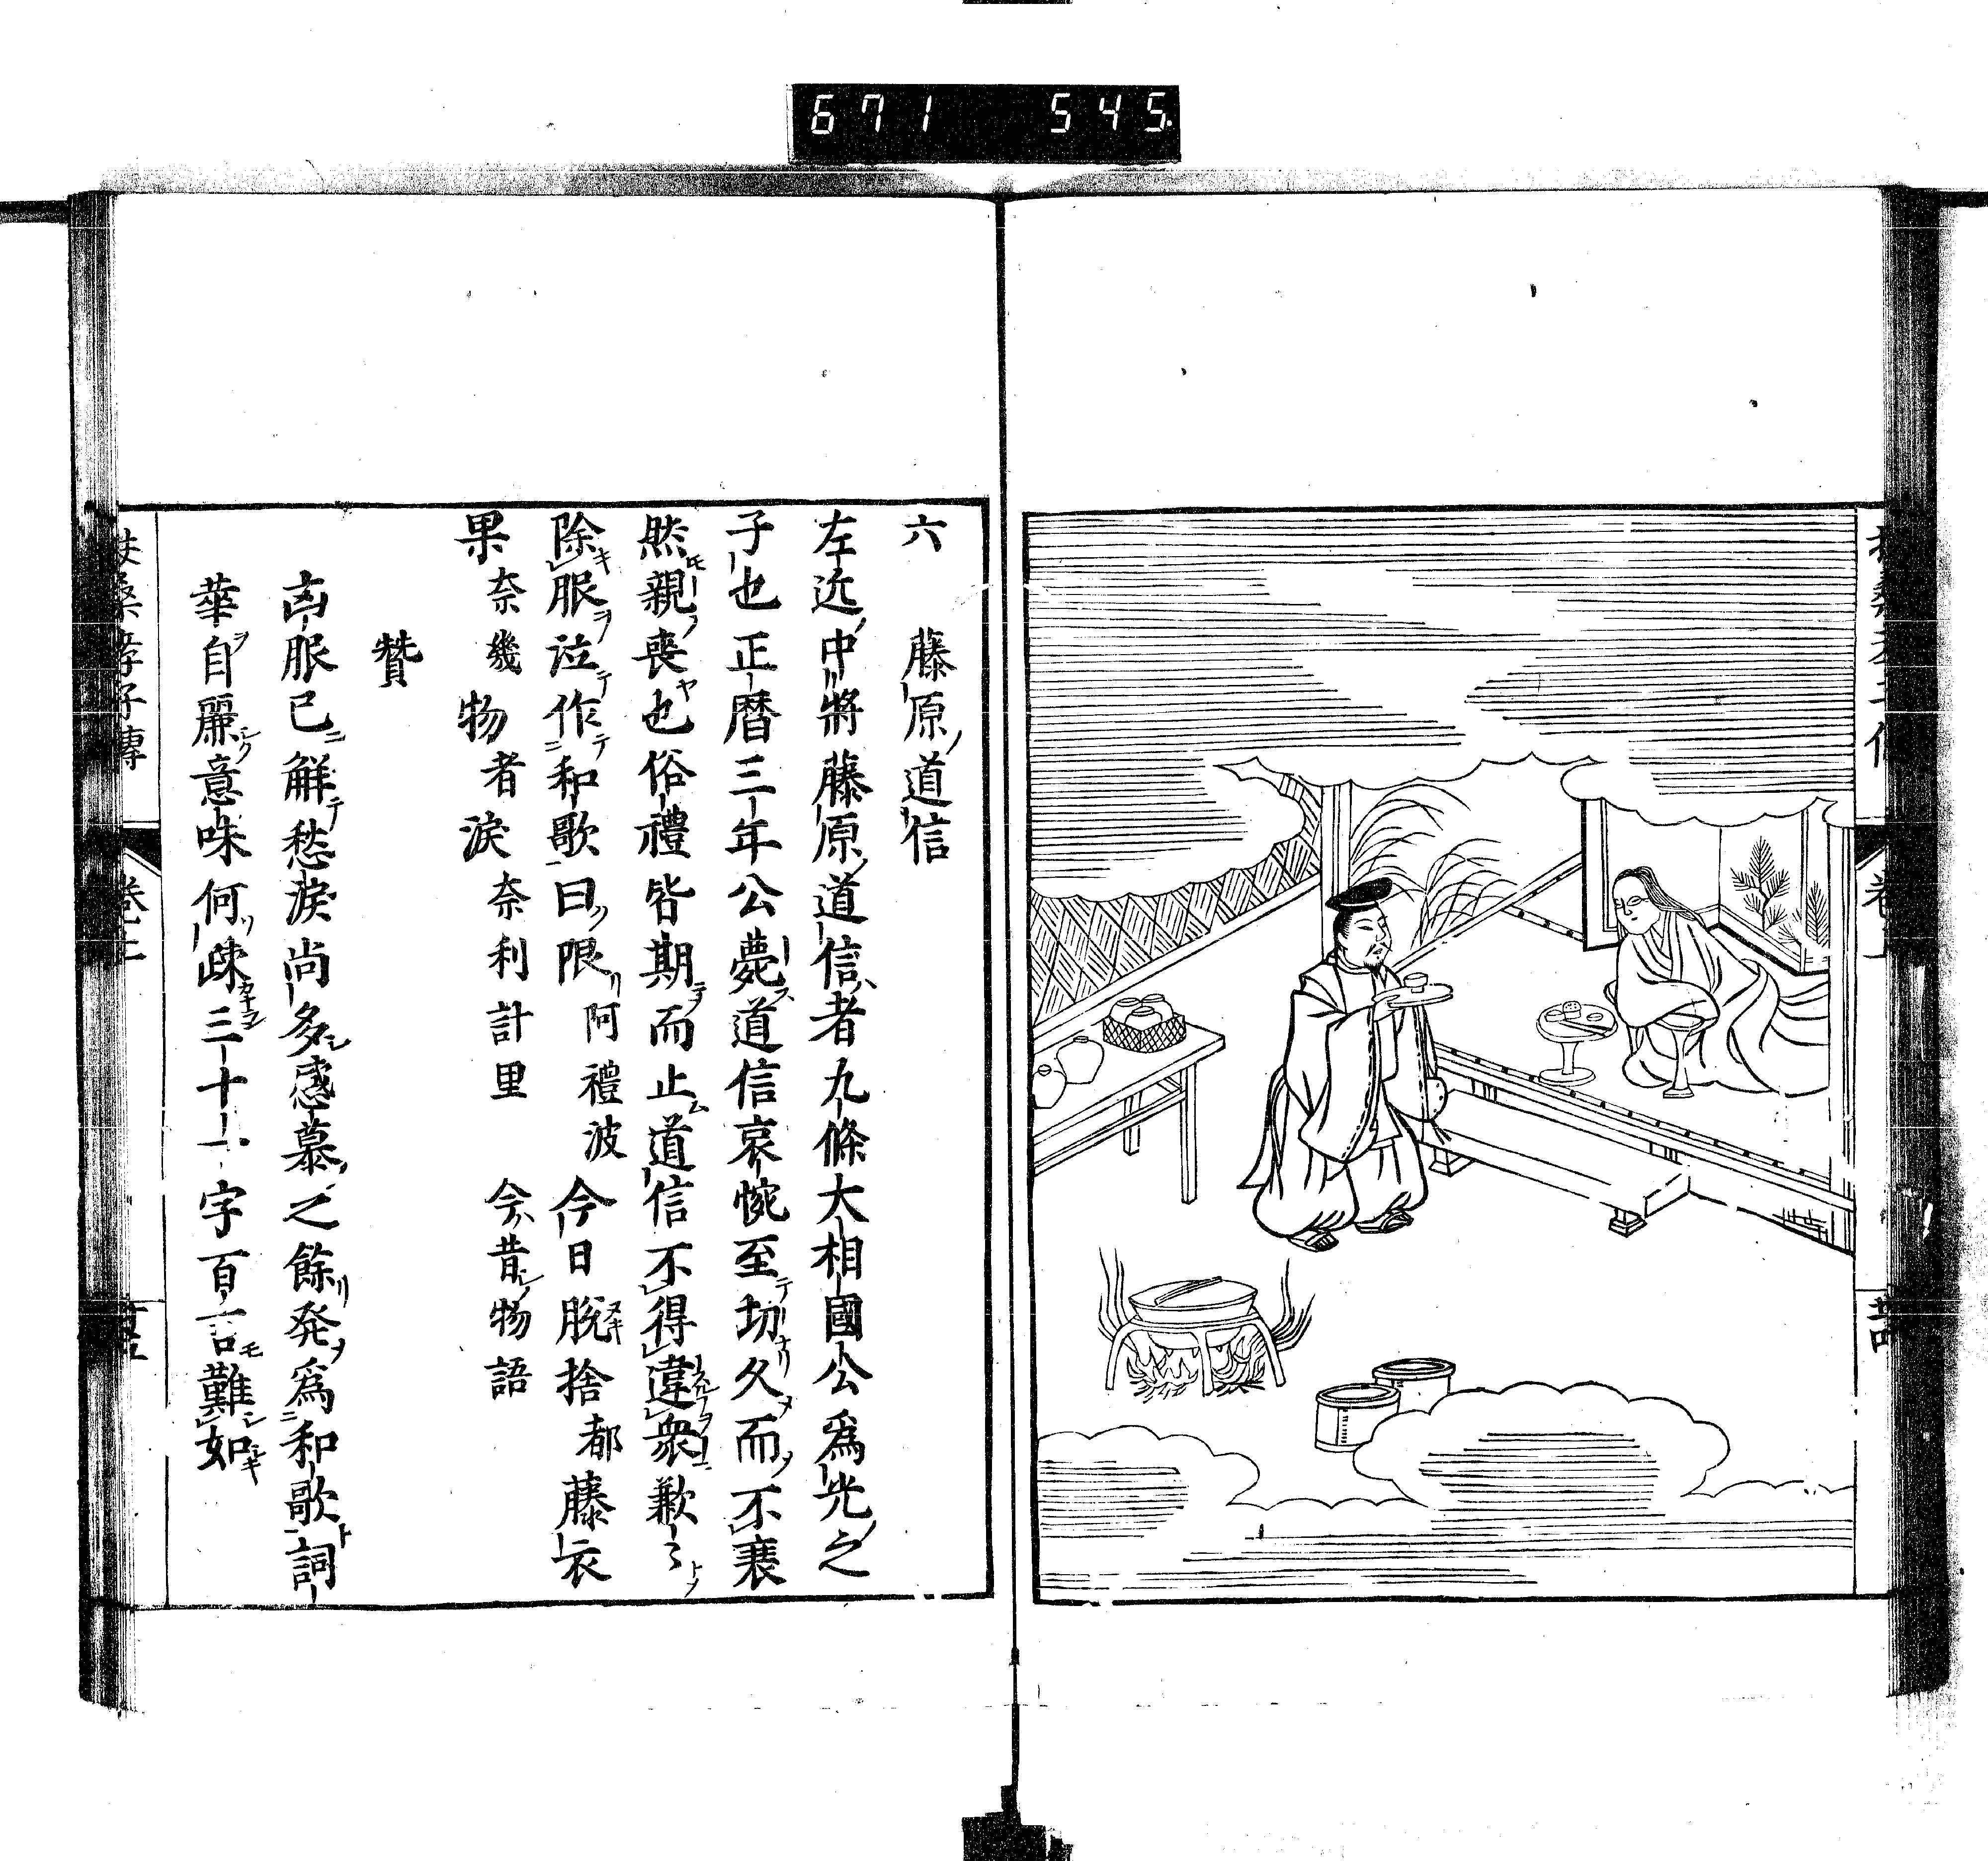 671 545.
六 藤原道信
左近中將藤原道信者九條大相國公爲光之
子也正暦三年公薨道信哀惋至切久而不衰
然親喪也俗禮皆期而止道信不得違衆歎々
除服泣作和歌曰限阿禮波今日脫捨都藤衣
果奈幾物者淚奈利計里 今昔物語
贊
凶服已解愁淚尚多感慕之餘発爲和歌詞
華自麗意味何疎三十一字百言難如
扶桑孝子傳 卷上